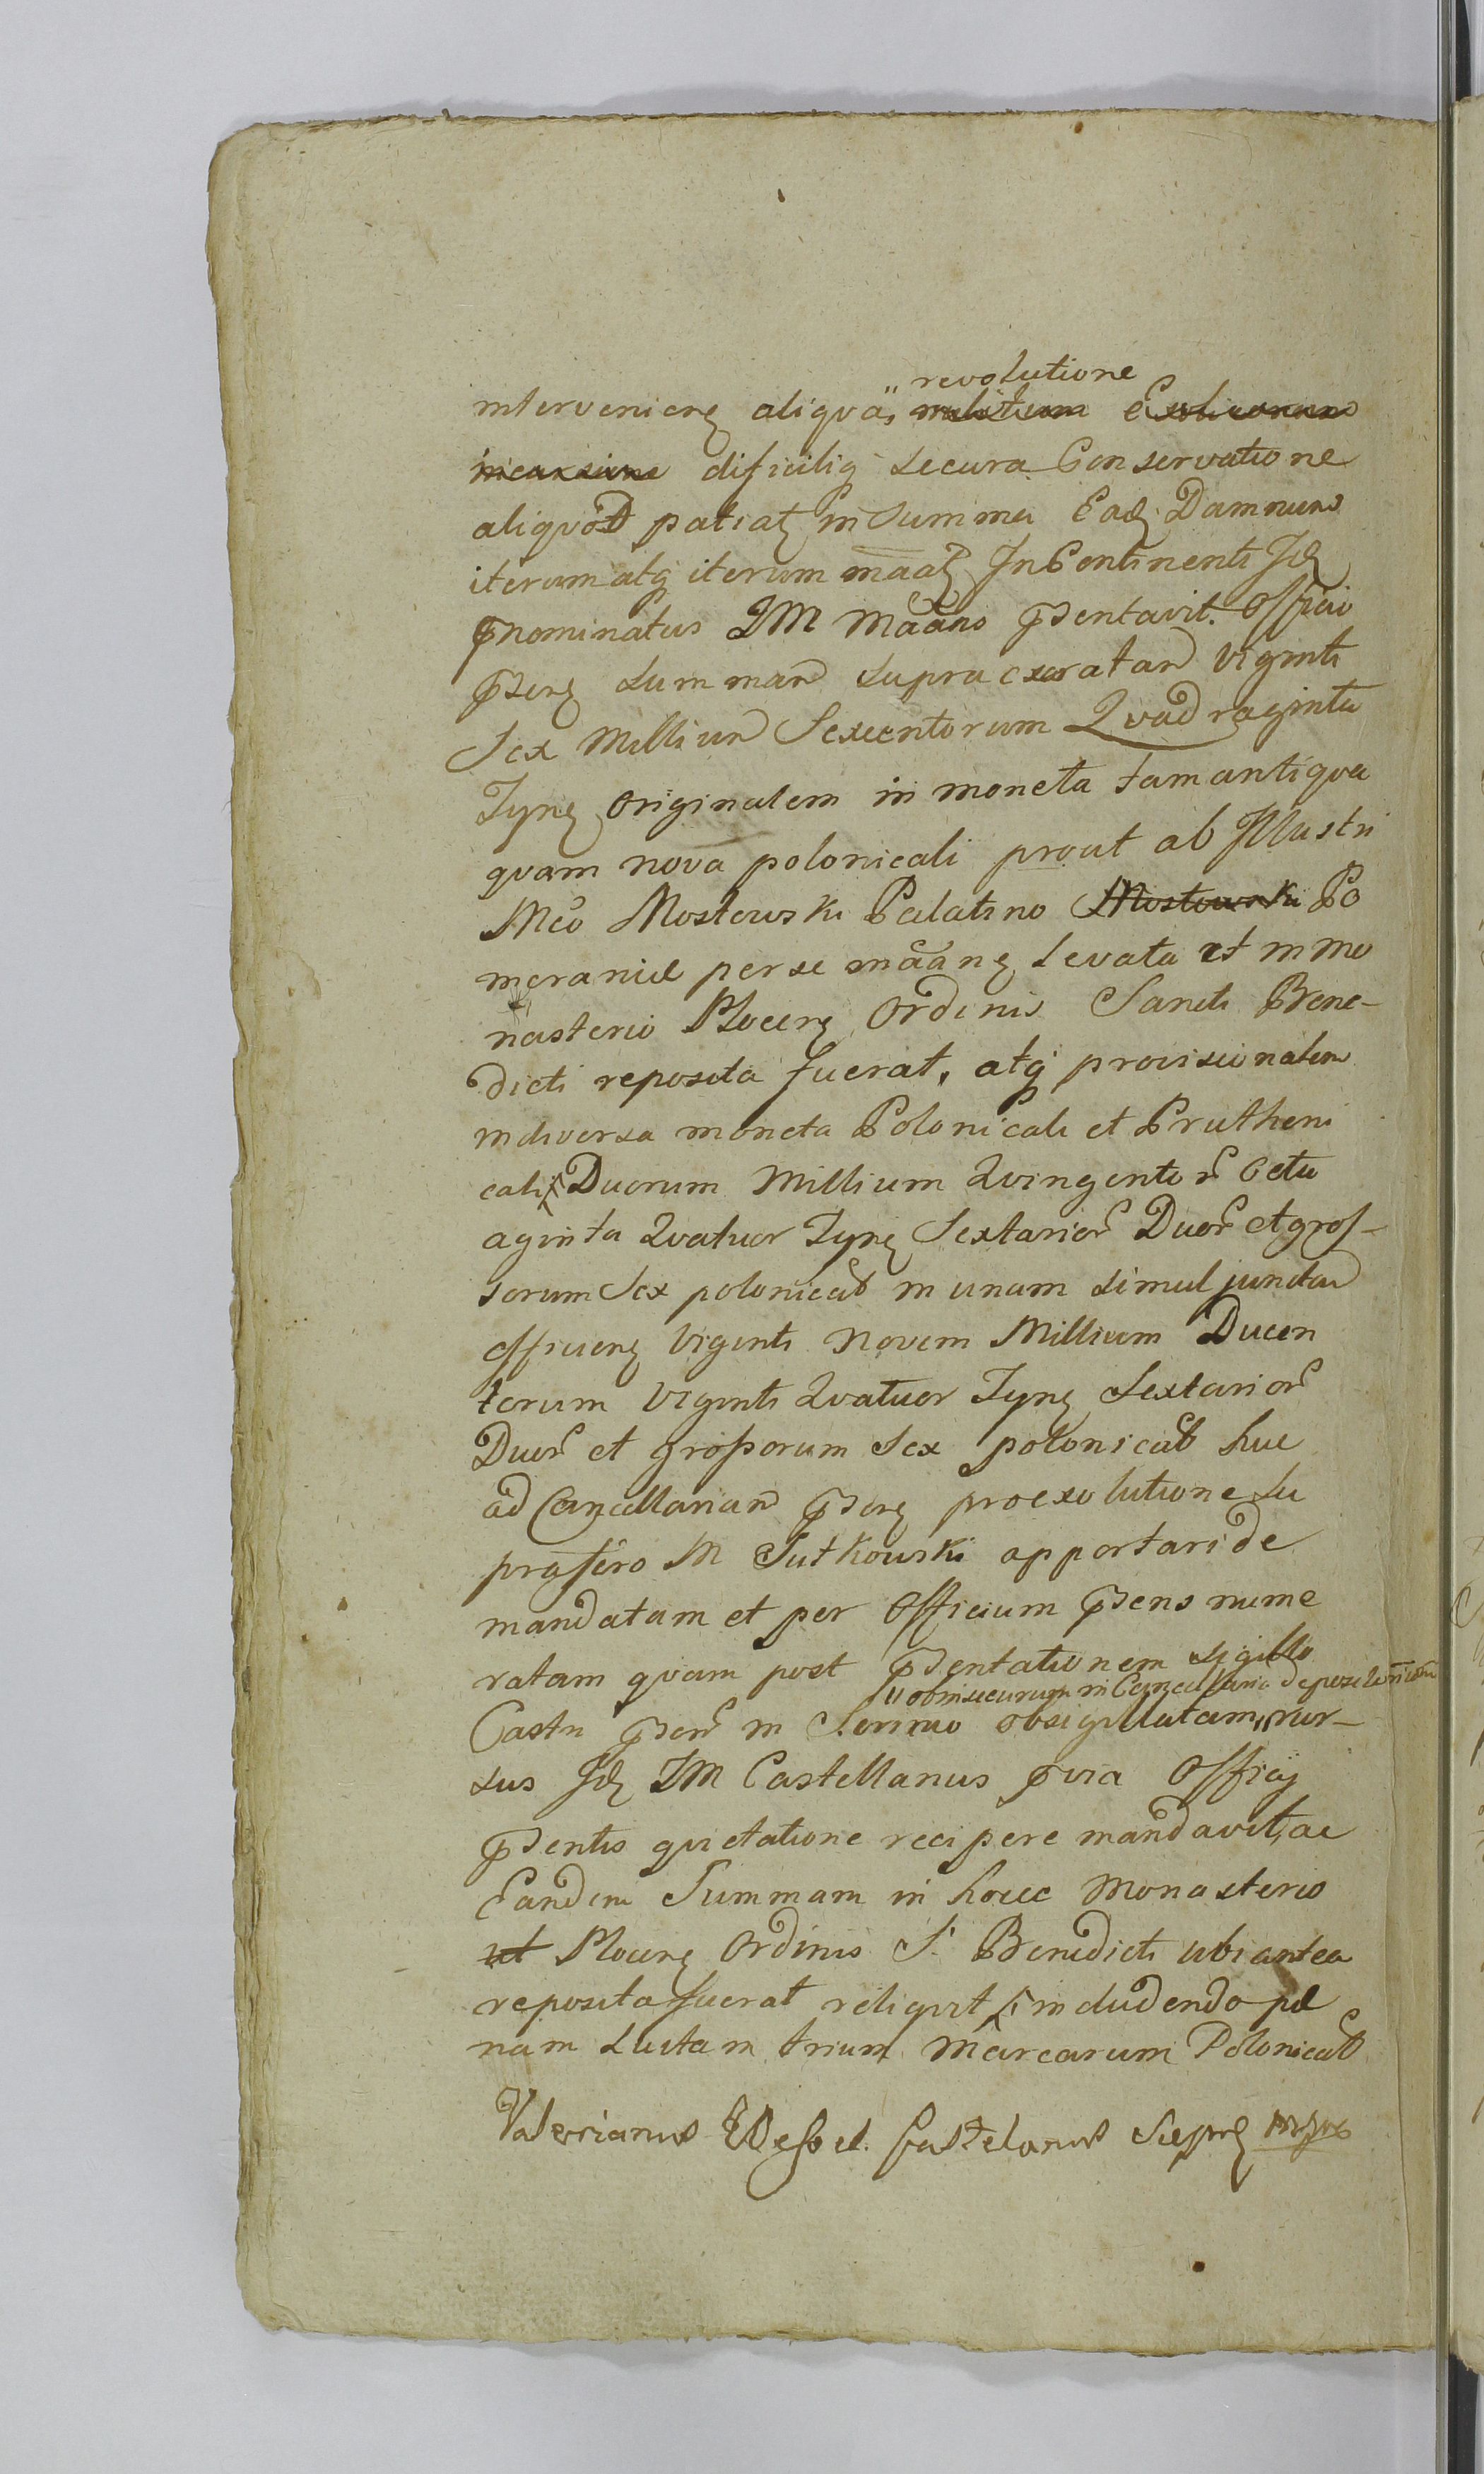 revolutione
intervenienẽ aliqvä, militum Exolicorum
incursione dificiliq̃ secura Conservatione
aliqvod patiatȝ in Summa Eadȝ Damnum
iterum atq̃ iterum māatȝ In Continenti Idȝ
p̃nominatus IM Māans p̃sentavit Officio
p̃senȝ summam supra exaratam viginti
Sex Millium Sexcentorum Qvadraginta
Tynȝ originalem in moneta tam antiqva
qvam nova polonicali prout ab Illustri
Mco Mostowski Palatino Mostowski Po
meraniæ per se māanȝ levata et in mo
nasterio Plocenȝ Ordinis Sancti Bene-
dicti reposita fuerat, atq̃ provisionalem
in diversa moneta Polonicali et Prutheni
cali Duorum Millium Qvingentor̃ Octu
aginta Qvatuor Tynȝ Sextarior̃ Duor̃ et gros-
sorum Sex polonical in unam simul junctam
efficienȝ Viginti Novem Millium Ducen
torum Viginti Qvatuor Tynȝ Sextarior̃
Duor̃ et grossorum Sex polonical huc
ad Cancellariam p̃senȝ pro exolutione su
prafato M Sutkowski apportari de
mandatam et per Officium p̃sens nume
ratam qvam post p̃sentationem sigillo
ob insecurum in Cancellaria depositorium
Castri p̃sen̄ in Scrinio obsigillatam,, rur-
sus Idȝ IM Castellanus p̃via Officij
p̃sentis qvietatione recipere mandavit, ac
Eandem Summam in hocce Monasterio
ut Plocenȝ Ordinis S. Benedicti ubi antea
reposita fuerat reliqvit includendo pæ
nam lutam trium Marcarum Polonical
Valerianus Wessel Castelanus Sieprȝ mpp